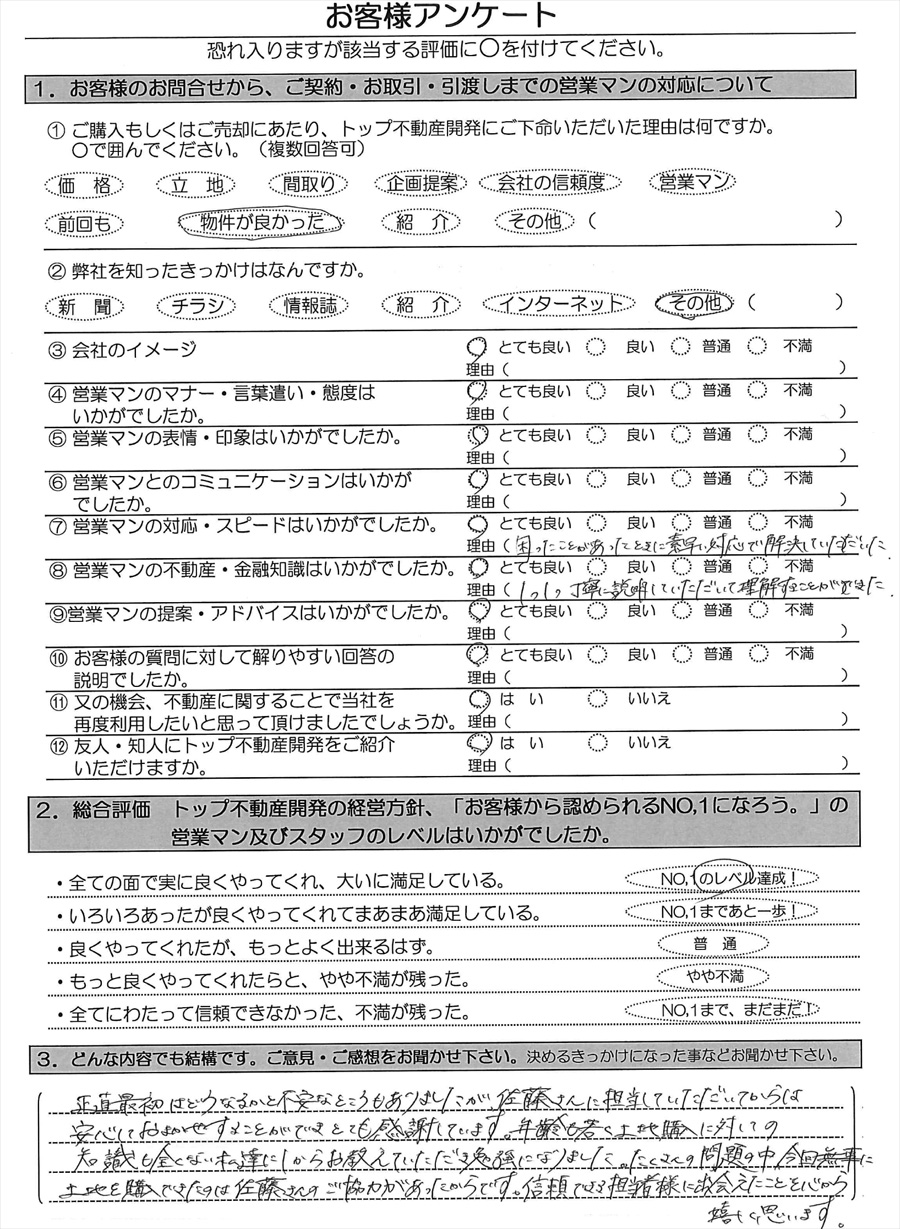 お客様アンケート
恐れ入りますが該当する評価に〇を付けてください。
1．お客様のお問合せから、ご契約・お取引・引渡しまでの営業マンの対応について
① ご購入もしくはご売却にあたり、トップ不動産開発にご下命いただいた理由は何ですか。
〇で囲んでください。（複数回答可）
価　格　立　地　間取り　企画提案　会社の信頼度　営業マン
前回も　物件が良かった　紹　介　その他　（　　　）
② 弊社を知ったきっかけはなんですか。
新　聞　チラシ　情報誌　紹　介　インターネット　その他　（　　　）
③ 会社のイメージ　とても良い　良い　普通　不満
理由（　　　）
④ 営業マンのマナー・言葉遣い・態度は　とても良い　良い　普通　不満
いかがでしたか。　理由（　　　）
⑤ 営業マンの表情・印象はいかがでしたか。　とても良い　良い　普通　不満
理由（　　　）
⑥ 営業マンとのコミュニケーションはいかが　とても良い　良い　普通　不満
でしたか。　理由（　　　）
⑦ 営業マンの対応・スピードはいかがでしたか。　とても良い　良い　普通　不満
理由（困ったことがあったときに素早い対応で解決していただいた
⑧ 営業マンの不動産・金融知識はいかがでしたか。　とても良い　良い　普通　不満
理由（1つ1つ丁寧に説明していただいて理解することができた
⑨営業マンの提案・アドバイスはいかがでしたか。　とても良い　良い　普通　不満
理由（　　　）
⑩ お客様の質問に対して解りやすい回答の　とても良い　良い　普通　不満
説明でしたか。　理由（　　　）
⑪ 又の機会、不動産に関することで当社を　は　い　いいえ
再度利用したいと思って頂けましたでしょうか。　理由（　　　）
⑫ 友人・知人にトップ不動産開発をご紹介　は　い　いいえ
いただけますか。　理由（　　　）
2．総合評価　トップ不動産開発の経営方針、「お客様から認められるNO,1になろう。」の
営業マン及びスタッフのレベルはいかがでしたか。
・全ての面で実に良くやってくれ、大いに満足している。　NO,1のレベル達成！
・いろいろあったが良くやってくれてまあまあ満足している。　NO,1まであと一歩！
・良くやってくれたが、もっとよく出来るはず。　普　通
・もっと良くやってくれたらと、やや不満が残った。　やや不満
・全てにわたって信頼できなかった、不満が残った。　NO,1まで、まだまだ！
3．どんな内容でも結構です。ご意見・ご感想をお聞かせ下さい。決めるきっかけになった事などお聞かせ下さい。
正直最初はどうなるかと不安なところもありましたが佐藤さんに担当していただいてからは
安心しておまかせすることができとても感謝しています。年齢も若く土地購入に対しての
知識も全くない私達に1からお教えていただき勉強になりました。たくさんの問題の中今回無事に
土地を購入できたのは佐藤さんのご協力があったからです。信頼できる担当者様に出会えたことを心から
嬉しく思います。